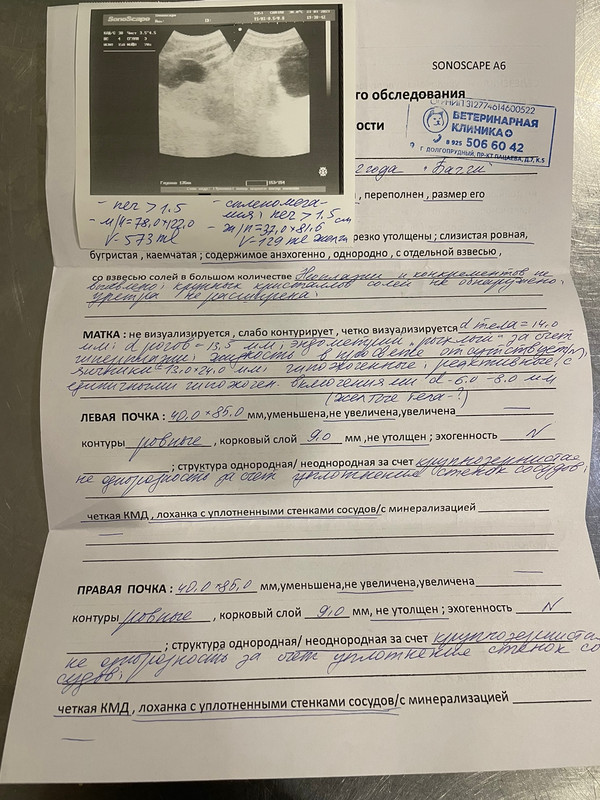 SonoScape
SONOSCAPE A6
го обследования
ОГРНИП 312774614600522
ВЕТЕРИНАРНАЯ
КЛИНИКА
8 925 506 60 42
Г. ДОЛГОПРУДНЫЙ, ПР-КТ ПАЦАЕВА, Д.7, К.5
ости
2 года
, переполнен , размер его
- печ > 1.5
V- 573 ml
- спленомега-
лия; печ > 1.5 см
V-129 ml
резко утолщены ; слизистая ровная,
бугристая , каемчатая ; содержимое анэхогенно , однородно , с отдельной взвесью ,
со взвесью солей в большом количестве Неоплазии и конкрементов не
выявлено; крупных кристаллов солей не обнаружено;
уретра не расширена.
МАТКА : не визуализируется , слабо контурирует , четко визуализируется d тела = 14.0
мм; d рогов = 13.5 мм; эндометрий "рыхлый" за счет
гиперплазии; жидкость в просвете отсутствует;
яичники = 13.0×24.0 мм; гипоэхогенные; реактивные; с
единичными гипоэхоген. включениями d - 6.0 - 8.0 мм
(желтые тела - ?)
ЛЕВАЯ ПОЧКА : 40.0×85.0 мм,уменьшена,не увеличена,увеличена
контуры ровные , корковый слой 9.0 мм ,не утолщен ; эхогенность N
; структура однородная/ неоднородная за счет крупнозернистая
не однородность за счет уплотнения стенок сосудов;
четкая КМД , лоханка с уплотненными стенками сосудов/с минерализацией
ПРАВАЯ ПОЧКА : 40.0×85.0 мм,уменьшена,не увеличена,увеличена
контуры ровные , корковый слой 9.0 мм, не утолщен ; эхогенность N
; структура однородная/ неоднородная за счет крупнозерниста
не однородность за счет уплотнение стенок со
судов;
четкая КМД , лоханка с уплотненными стенками сосудов/с минерализацией